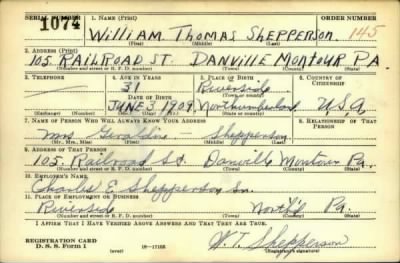 SERIAL NUMBER 1. NAME (Print) ORDER NUMBER
1074 William Thomas Shepperson 145
(First) (Middle) (Last)
2. ADDRESS (Print)
105 RAILROAD ST. DANVILLE MONTOUR PA.
(Number and street or R. F. D. number) (Town) (County) (State)
3. TELEPHONE 4. AGE IN YEARS 5. PLACE OF BIRTH 6. COUNTRY OF CITIZENSHIP
31 Riverside
DATE OF BIRTH (Town or county)
JUNE 3 1909 Northumberland U.S.A
(Exchange) (Number) (Mo.) (Day) (Yr.) (State or country)
7. NAME OF PERSON WHO WILL ALWAYS KNOW YOUR ADDRESS 8. RELATIONSHIP OF THAT PERSON
Mrs Geraldine - Shepperson
(Mr., Mrs., Miss) (First) (Middle) (Last)
9. ADDRESS OF THAT PERSON
105 Railroad St. Danville Montour Pa.
(Number and street or R. F. D. number) (Town) (County) (State)
10. EMPLOYER'S NAME
Charles E Shepperson Sr.
11. PLACE OF EMPLOYMENT OR BUSINESS
Riverside North'd Pa.
(Number and street or R. F. D. number) (Town) (County) (State)
I AFFIRM THAT I HAVE VERIFIED ABOVE ANSWERS AND THAT THEY ARE TRUE.
REGISTRATION CARD
D. S. S. Form 1 (over) 16-17105 W. T. Shepperson
(Registrant's signature)